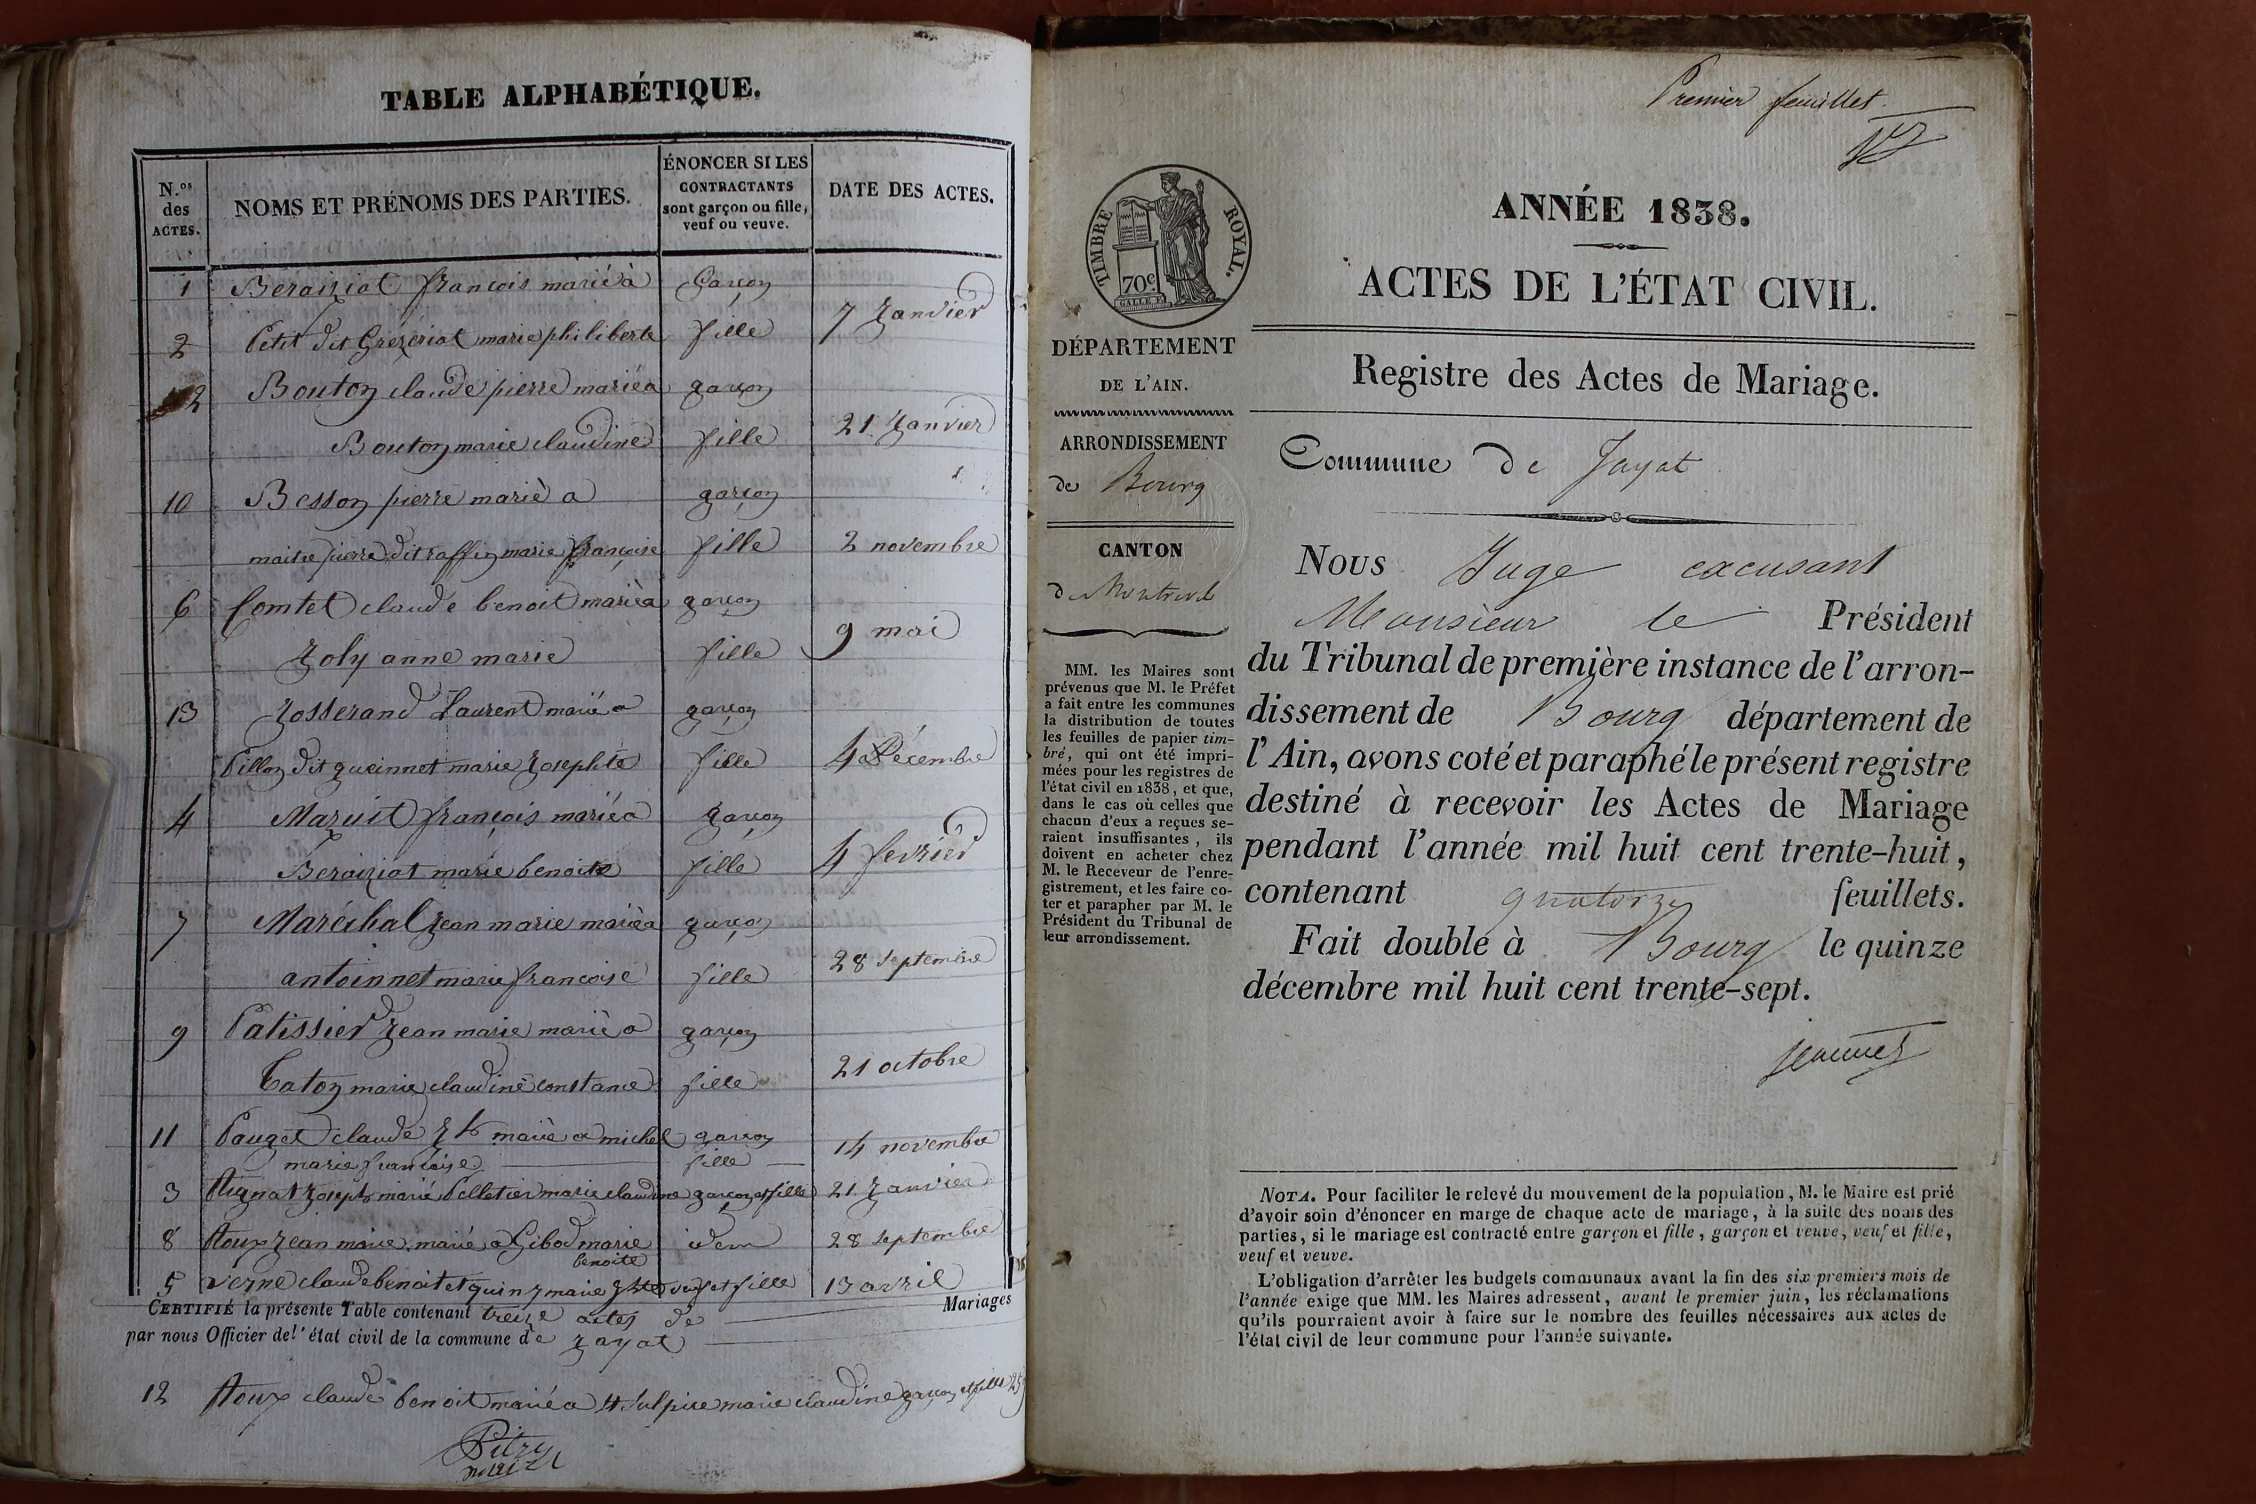 TABLE ALPHABÉTIQUE.
N.os des ACTES.
NOMS ET PRÉNOMS DES PARTIES.
ÉNONCER SI LES
CONTRACTANTS
sont garçon ou fille,
veuf ou veuve.
DATE DES ACTES.
1 Beraiziat françois marié à garçon
7 Janvier
2 Petit dit Grézériat marie philiberte fille
2 Bouton claude pierre marié a garçon
21 Janvier
Bouton marie claudine fille
10 Besson pierre marié a garçon
maitre pierre dit raffin marie françoise fille 2 novembre
6 Comtet claude benoit marié a garçon
9 mai
Joly anne marie fille
13 Josserand Laurent marié a garçon
Pillon dit gueinnet marie Josephte fille 4 Décembre
4 Mazuit françois marié a garçon
4 fevrier
Beraiziat marie benoite fille
7 Maréchal Jean marie marié a garçon
28 septembre
antoinnet marie françoise fille
9 Patissier Jean marie marié a garçon
21 octobre
Caton marie claudine constance fille
11 Pauget claude Jh marié a michel garçon
14 novembre
marie françoise fille
3 Rignat Joseph marié Pelletier marie claudine garçon et fille 21 Janvier
8 Roux Jean marie marié a Gibod marie idem 28 septembre
benoite
5 verne claude benoit et guin marie Jhte veuf et fille 13 avril
CERTIFIÉ la présente Table contenant treize actes de Mariages
par nous Officier de l'état civil de la commune de Jayat
12 Roux claude benoit marié a St Sulpice marie claudine garçon et fille 25
Premier feuillet.
TIMBRE ROYAL.
70c
ANNÉE 1838.
ACTES DE L'ÉTAT CIVIL.
Registre des Actes de Mariage.
DÉPARTEMENT
DE L'AIN.
ARRONDISSEMENT
de Bourg
CANTON
de Montrevel
MM. les Maires sont
prévenus que M. le Préfet
a fait entre les communes
la distribution de toutes
les feuilles de papier tim-
bré, qui ont été impri-
mées pour les registres de
l'état civil en 1838, et que,
dans le cas où celles que
chacun d'eux a reçues se-
raient insuffisantes, ils
doivent en acheter chez
M. le Receveur de l'enre-
gistrement, et les faire co-
ter et parapher par M. le
Président du Tribunal de
leur arrondissement.
Commune de Jayat
Nous Juge excusant
Monsieur le Président
du Tribunal de première instance de l'arron-
dissement de Bourg département de
l'Ain, avons coté et paraphé le présent registre
destiné à recevoir les Actes de Mariage
pendant l'année mil huit cent trente-huit,
contenant quatorze feuillets.
Fait double à Bourg le quinze
décembre mil huit cent trente-sept.
NOTA. Pour faciliter le relevé du mouvement de la population, M. le Maire est prié
d'avoir soin d'énoncer en marge de chaque acte de mariage, à la suite des noms des
parties, si le mariage est contracté entre garçon et fille, garçon et veuve, veuf et fille,
veuf et veuve.
L'obligation d'arrêter les budgets communaux avant la fin des six premiers mois de
l'année exige que MM. les Maires adressent, avant le premier juin, les réclamations
qu'ils pourraient avoir à faire sur le nombre des feuilles nécessaires aux actes de
l'état civil de leur commune pour l'année suivante.